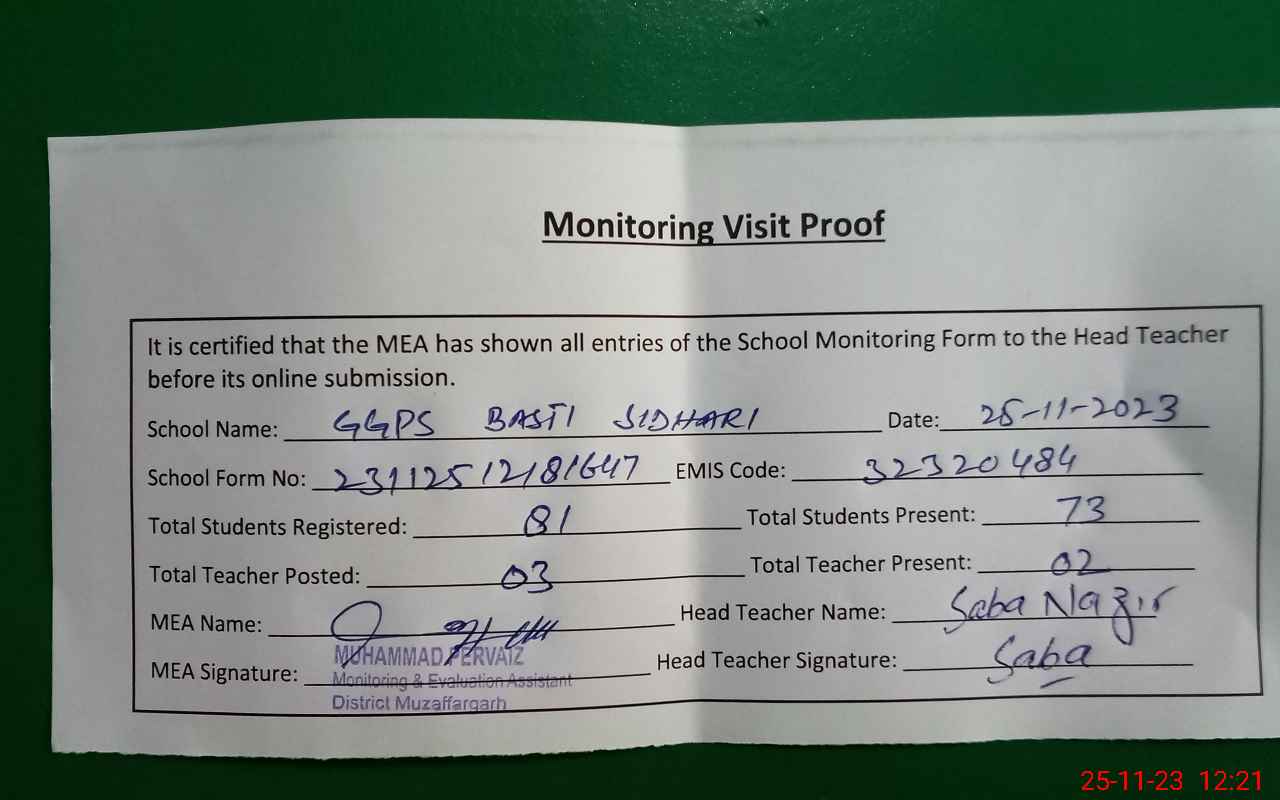 Monitoring Visit Proof
It is certified that the MEA has shown all entries of the School Monitoring Form to the Head Teacher
before its online submission.
School Name: GGPS BASTI SIDHARI Date: 25-11-2023
School Form No: 23112512181647 EMIS Code: 32320484
Total Students Registered: 81 Total Students Present: 73
Total Teacher Posted: 03 Total Teacher Present: 02
MEA Name: Head Teacher Name: Saba Nazir
MEA Signature: Head Teacher Signature: Saba
MUHAMMAD PERVAIZ
Monitoring & Evaluation Assistant
District Muzaffargarh
25-11-23 12:21